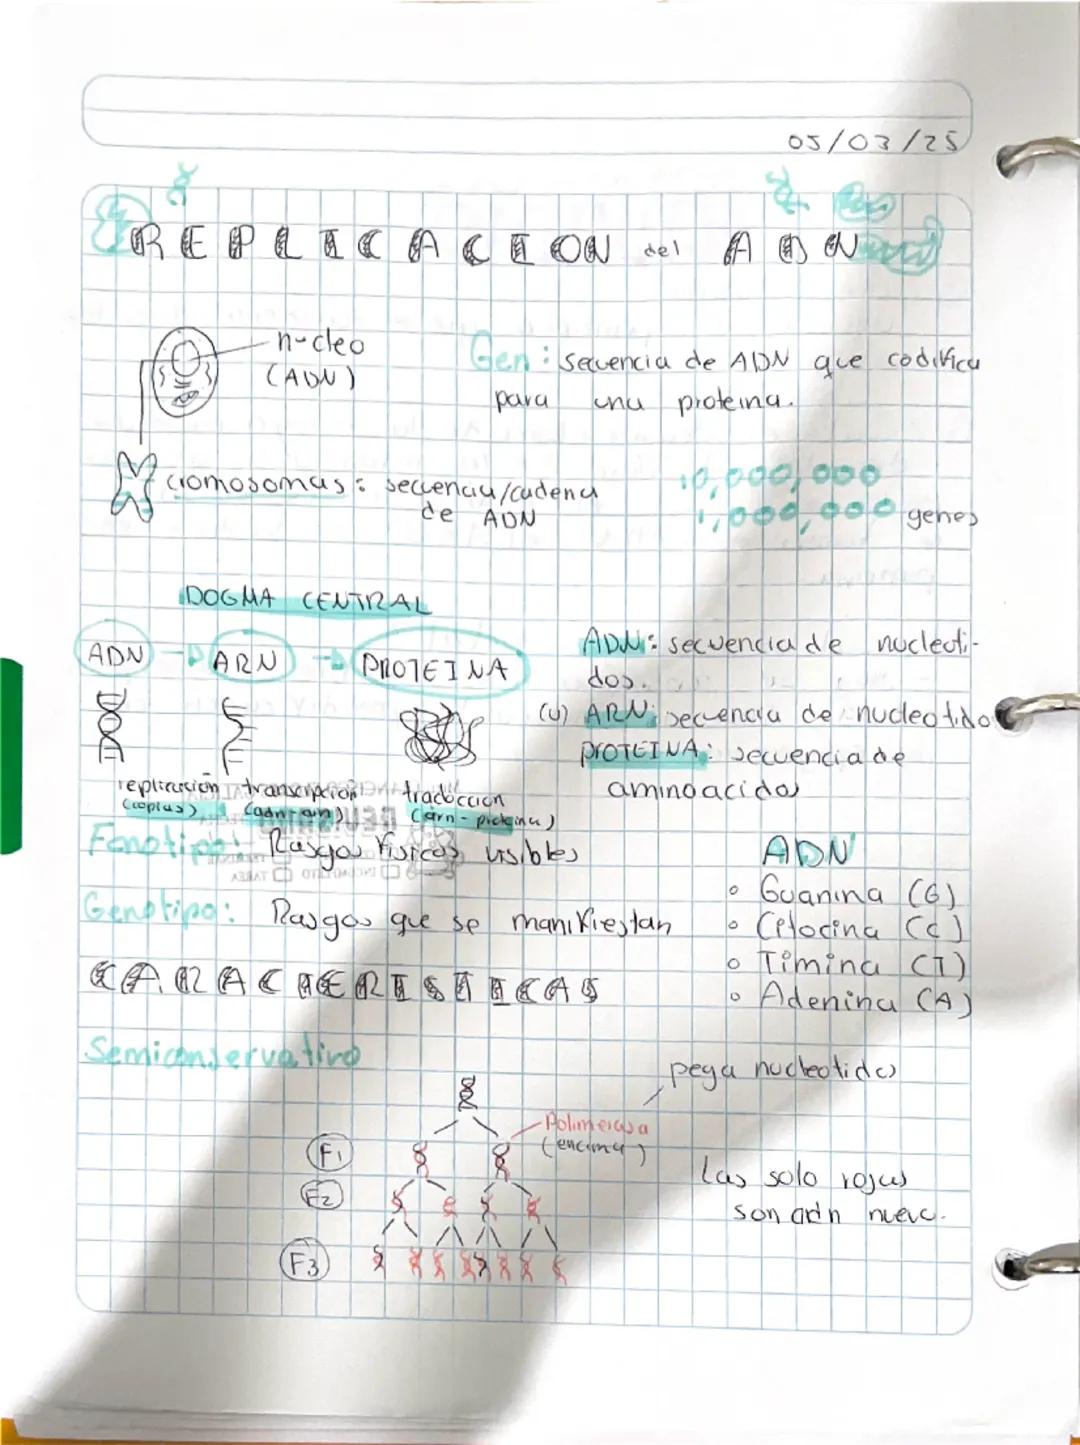 05/03/25
REPLICACION del ADN
nucleo
(ADN)
Gen: secuencia de ADN que codifica
para una proteina.
cromosomas: secuencia/cadena
de ADN
10,000,000
1,000,000 genes
DOGMA CENTRAL
ADN → ARN → PROTEINA
replicación transcripcion traduccion
(copias) (adn-arn) (arn-proteina)
ADN: secuencia de nucleoti-
dos.
(u) ARN: secuencia de nucleotido
PROTEINA: secuencia de
aminoacidos
Fenotipo: Rasgos fisicos visibles
Genotipo: Rasgos que se manifiestan
ADN
◦ Guanina (G)
◦ Citocina (C)
◦ Timina (T)
◦ Adenina (A)
CARACTERISTICAS
Semiconservativo
pega nucleotidos
Polimerasa
(encima)
F1
F2
F3
Las solo rojas
son adn nuevo.